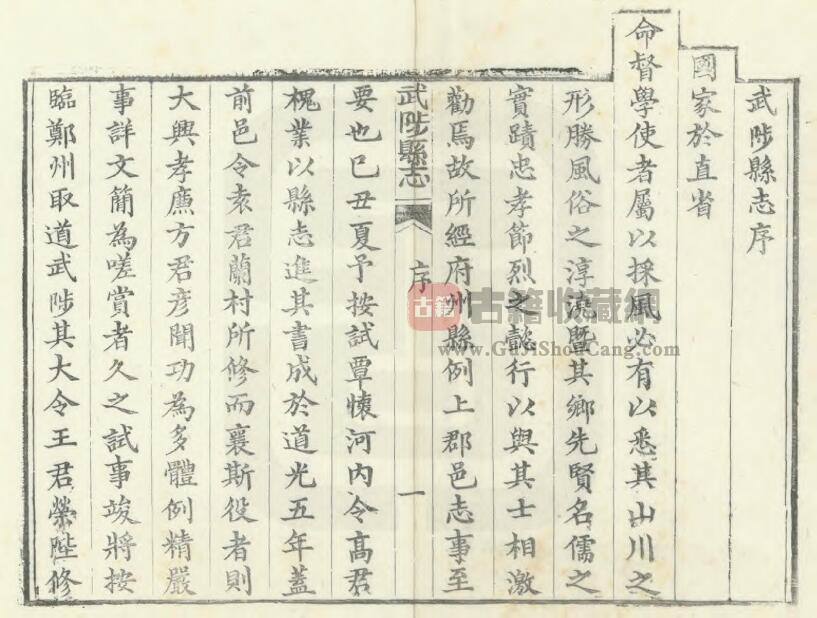 武陟縣志序
國家於直省
命督學使者屬以採風必有以悉其山川之
形勝風俗之淳澆暨其鄉先賢名儒之
實蹟忠孝節烈之懿行以與其士相激
勸焉故所經府州縣例上郡邑志事至
武陟縣志 序 一
要也巳丑夏予按試覃懷河內令高君
槐業以縣志進其書成於道光五年蓋
前邑令袁君蘭村所修而襄斯役者則
大興孝廉方君彥聞功為多體例精嚴
事詳文簡為嗟賞者久之試事竣將按
臨鄭州取道武陟其大令王君榮陛修
古籍 古籍收藏網
www.GuJiShouCang.com